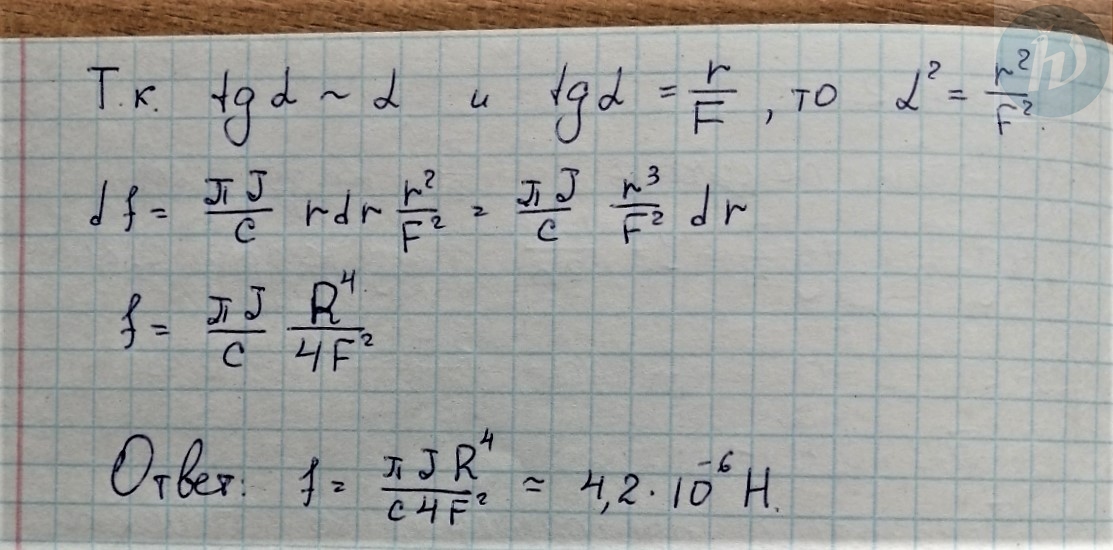 Т.к. tg α ~ α и tg α = r/F, то α² = r²/F².
df = πJ/c r dr r²/F² = πJ/c r³/F² dr
f = πJ/c R⁴/4F²
Ответ: f = πJR⁴/c4F² ≈ 4,2 · 10⁻⁶ Н.